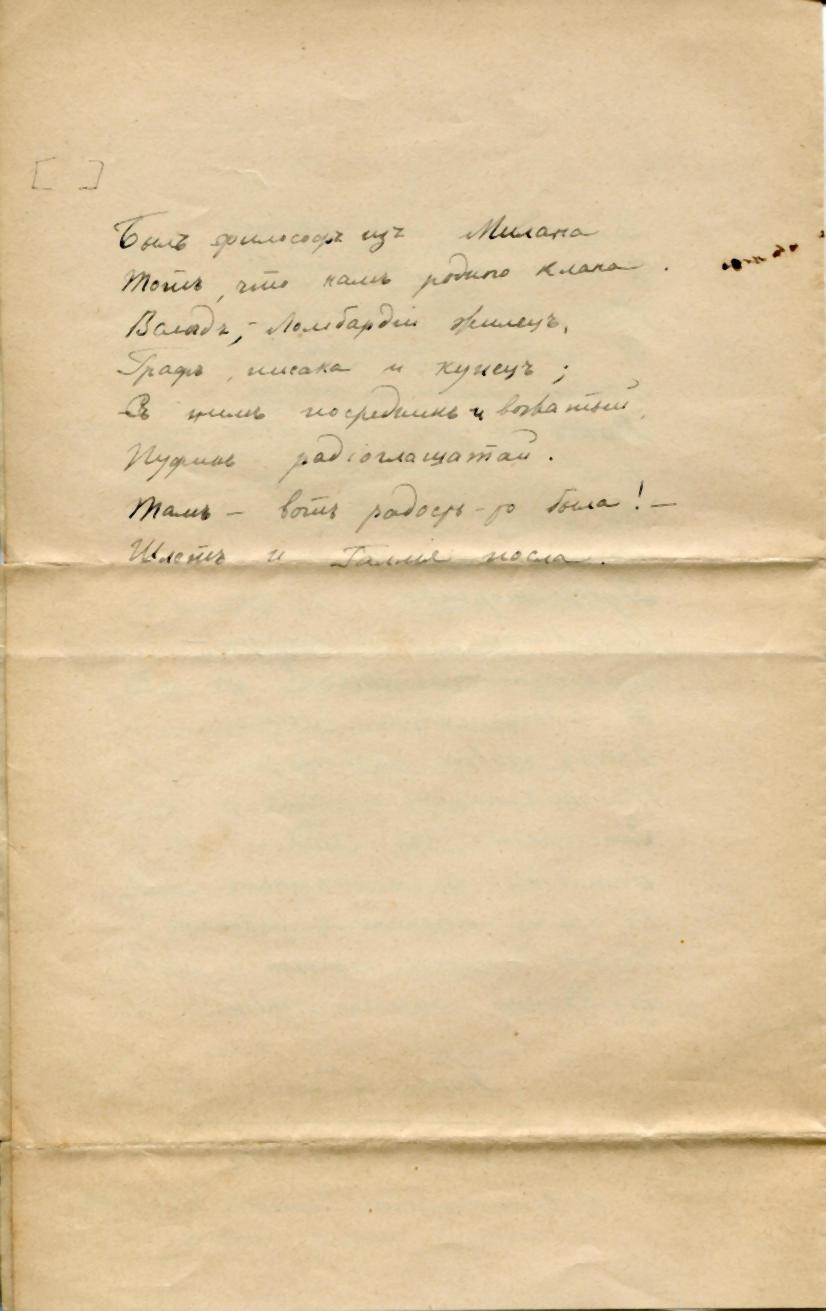 [ ]
Былъ философъ изъ Милана
Тотъ, что намъ родного клана.
Валадъ,- Ломбардіи жилецъ,
Графъ, писака и купецъ;
Съ нимъ посредникъ и вожатый,
Пуфинъ радіоглашатай.
Тамъ – вотъ радость-то была! –
Шлетъ и Галлія посла.